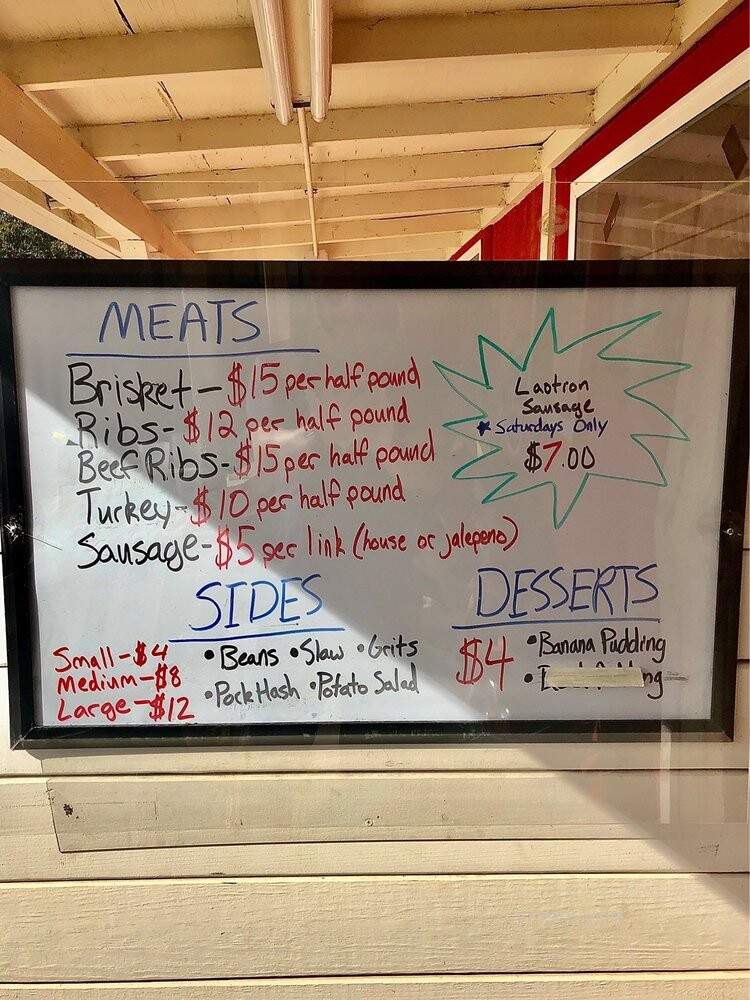 MEATS
Brisket - $15 per half pound
Ribs - $12 per half pound
Beef Ribs - $15 per half pound
Turkey - $10 per half pound
Sausage - $5 per link (house or jalepeno)
Laotron
Sausage
* Saturdays Only
$7.00
SIDES
Small - $4
Medium - $8
Large - $12
• Beans • Slaw • Grits
• Pork Hash • Potato Salad
DESSERTS
$4
• Banana Pudding
•